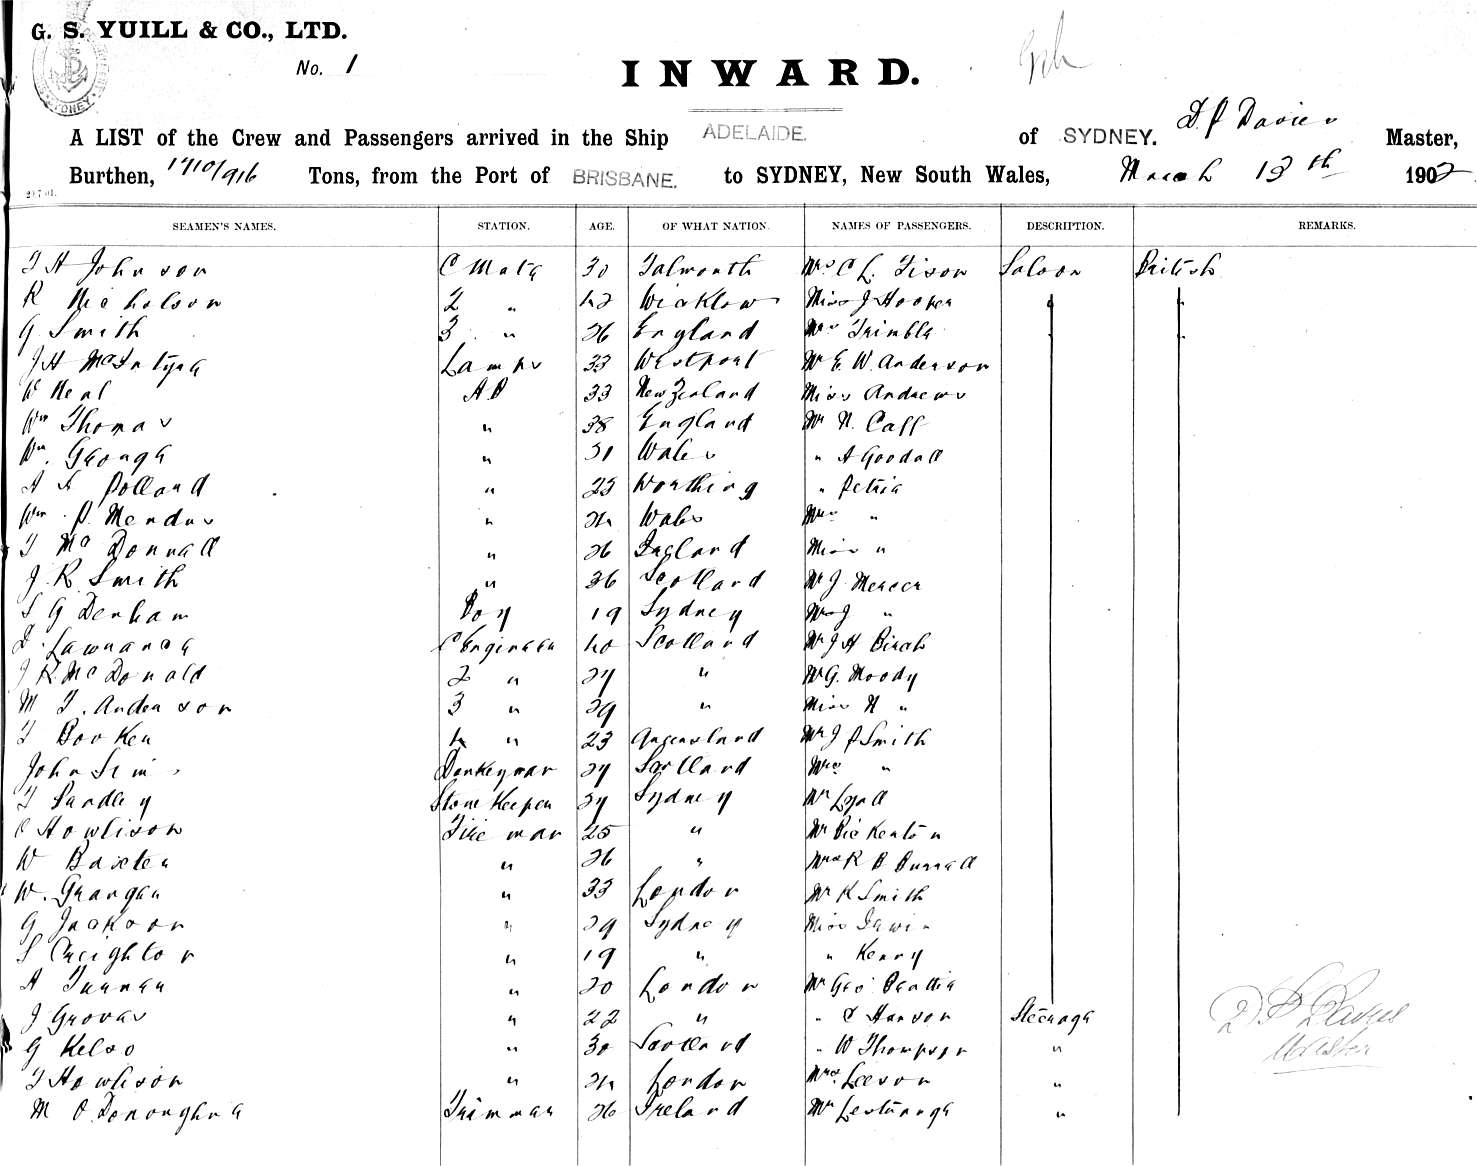 G. S. YUILL & CO., LTD.
No. 1
INWARD.
A LIST of the Crew and Passengers arrived in the Ship ADELAIDE. of SYDNEY. D. P. Davies Master,
Burthen, 1710/916 Tons, from the Port of BRISBANE. to SYDNEY, New South Wales, March 13th 1902
SEAMEN'S NAMES. STATION. AGE. OF WHAT NATION. NAMES OF PASSENGERS. DESCRIPTION. REMARKS.
T H Johnson C Mate 30 Falmouth Mrs C L Tison Saloon British
R Nicholson 2 " 42 Wicklow Miss J Hooper
G Smith 3 " 26 England Mrs Trimble
J H McIntyre Lamps 33 Westport Mr E. W. Anderson
W Neal A B 33 New Zealand Miss Andrews
Wm Thomas " 38 England Mr N. Call
Wm. George " 31 Wales " A Goodall
A F Pollard " 25 Worthing " Petrie
Wm P. Mendus " 24 Wales Mrs "
T McDonnall " 26 England Miss "
J. R. Smith " 36 Scotland Mr J. Mercer
S G Denham Boy 19 Sydney Mrs J "
D. Lawrance C Engineer 40 Scotland Mr J H Birch
J R McDonald 2 " 27 " Mr G. Moody
M T. Anderson 3 " 29 " Miss N "
T Booker 4 " 23 Queensland Mr J P Smith
John Sim Donkeyman 27 Scotland Mrs "
T Sandley Store Keeper 37 Sydney Mr Lyall
C Howlison Fireman 25 " Mr Pickenton
W Baxter " 26 " Mrs R B Burrall
W. Granger " 33 London Mr K Smith
G Jackson " 29 Sydney Miss Lewis
S Creighton " 19 " " Kenny
A Turner " 20 London Mr Geo Beattie
J Groves " 22 " " C Hanson Steerage
G Kelso " 30 Scotland " W Thompson "
T Howlison " 24 London Mrs. Leeson "
M O.Donoughue Trimmer 26 Ireland Mr Lesturage "
D P Davies
Master